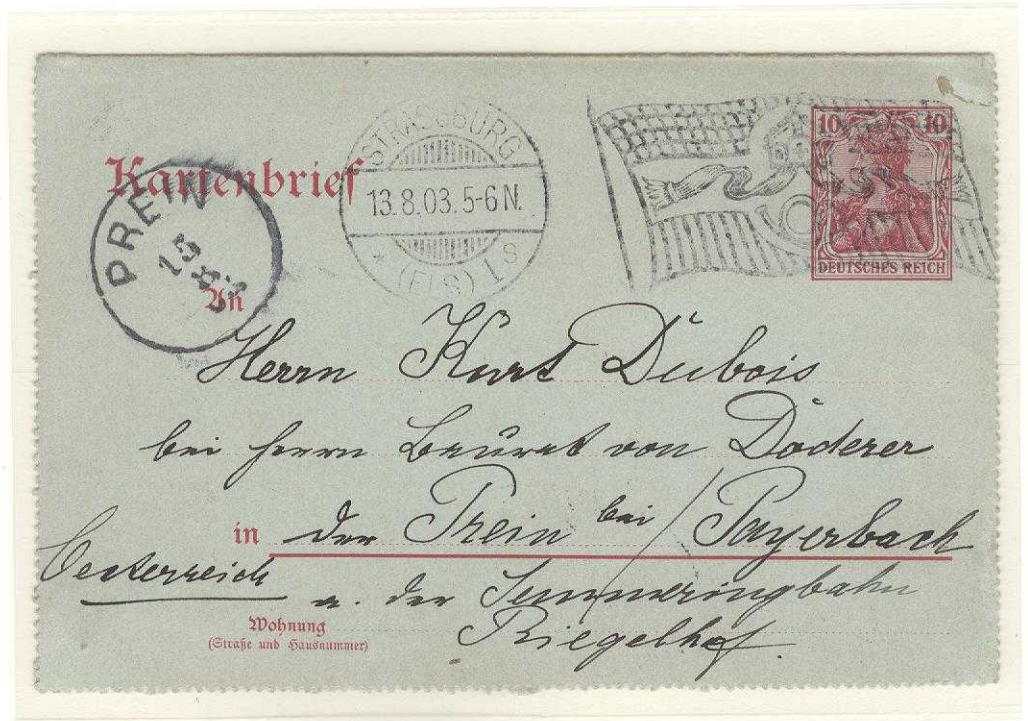 STRASSBURG
13.8.03.5-6N.
* (ELS) 1 s
10 10
DEUTSCHES REICH
Kartenbrief
PREIN
15 8
An
Herrn Kurt Dubois
bei Herrn Baurat von Doderer
in der Prein bei / Payerbach
Oesterreich
a. der Semmeringbahn
Riegelhof.
Wohnung
(Straße und Hausnummer)